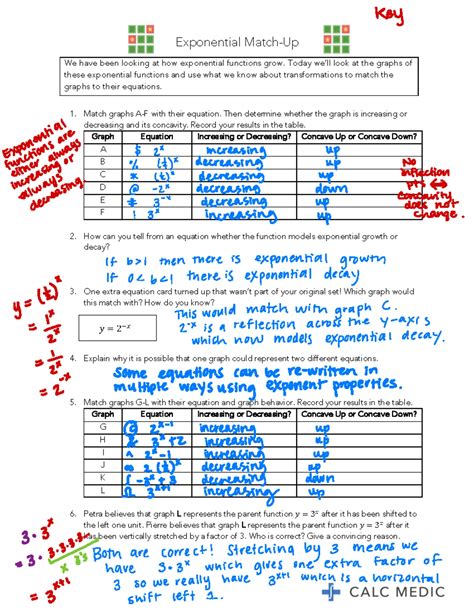 Key
Exponential Match-Up
We have been looking at how exponential functions grow. Today we'll look at the graphs of
these exponential functions and use what we know about transformations to match the
graphs to their equations.
1. Match graphs A-F with their equation. Then determine whether the graph is increasing or
decreasing and its concavity. Record your results in the table.
Exponential
functions are
either always
increasing or
always
decreasing.
Graph Equation Increasing or Decreasing? Concave Up or Concave Down?
A $ 2^x increasing up
B % (1/4)^x decreasing up
C * (1/2)^x decreasing up
D @ -2^x decreasing down
E # 3^-x decreasing up
F ! 3^x increasing up
No
inflection
pts ↔
concavity
does not
change.
2. How can you tell from an equation whether the function models exponential growth or
decay?
If b>1 then there is exponential growth
If 0<b<1 there is exponential decay
3. One extra equation card turned up that wasn't part of your original set! Which graph would
this match with? How do you know?
y = 2^-x
This would match with graph C.
2^-x is a reflection across the y-axis
which now models exponential decay.
y = (1/2)^x
= 1^x/2^x
= 1/2^x
= 2^-x
4. Explain why it is possible that one graph could represent two different equations.
Some equations can be re-written in
multiple ways using exponent properties.
5. Match graphs G-L with their equation and graph behavior. Record your results in the table.
Graph Equation Increasing or Decreasing? Concave Up or Concave Down?
G 2^x-1 increasing up
H & 3^x+2 increasing up
I ^ 2^x-1 increasing up
J 2(1/2)^x decreasing up
K -3^x+3 decreasing down
L 3^x+1 increasing up
6. Petra believes that graph L represents the parent function y = 3^x after it has been shifted to
the left one unit. Pierre believes that graph L represents the parent function y = 3^x after it
has been vertically stretched by a factor of 3. Who is correct? Give a convincing reason.
3·3^x
= 3·3·3·3·3...
x 3's
= 3^x+1
Both are correct! Stretching by 3 means we
have 3·3^x which gives one extra factor of
3 so we really have 3^x+1 which is a horizontal
shift left 1.
CALC MEDIC